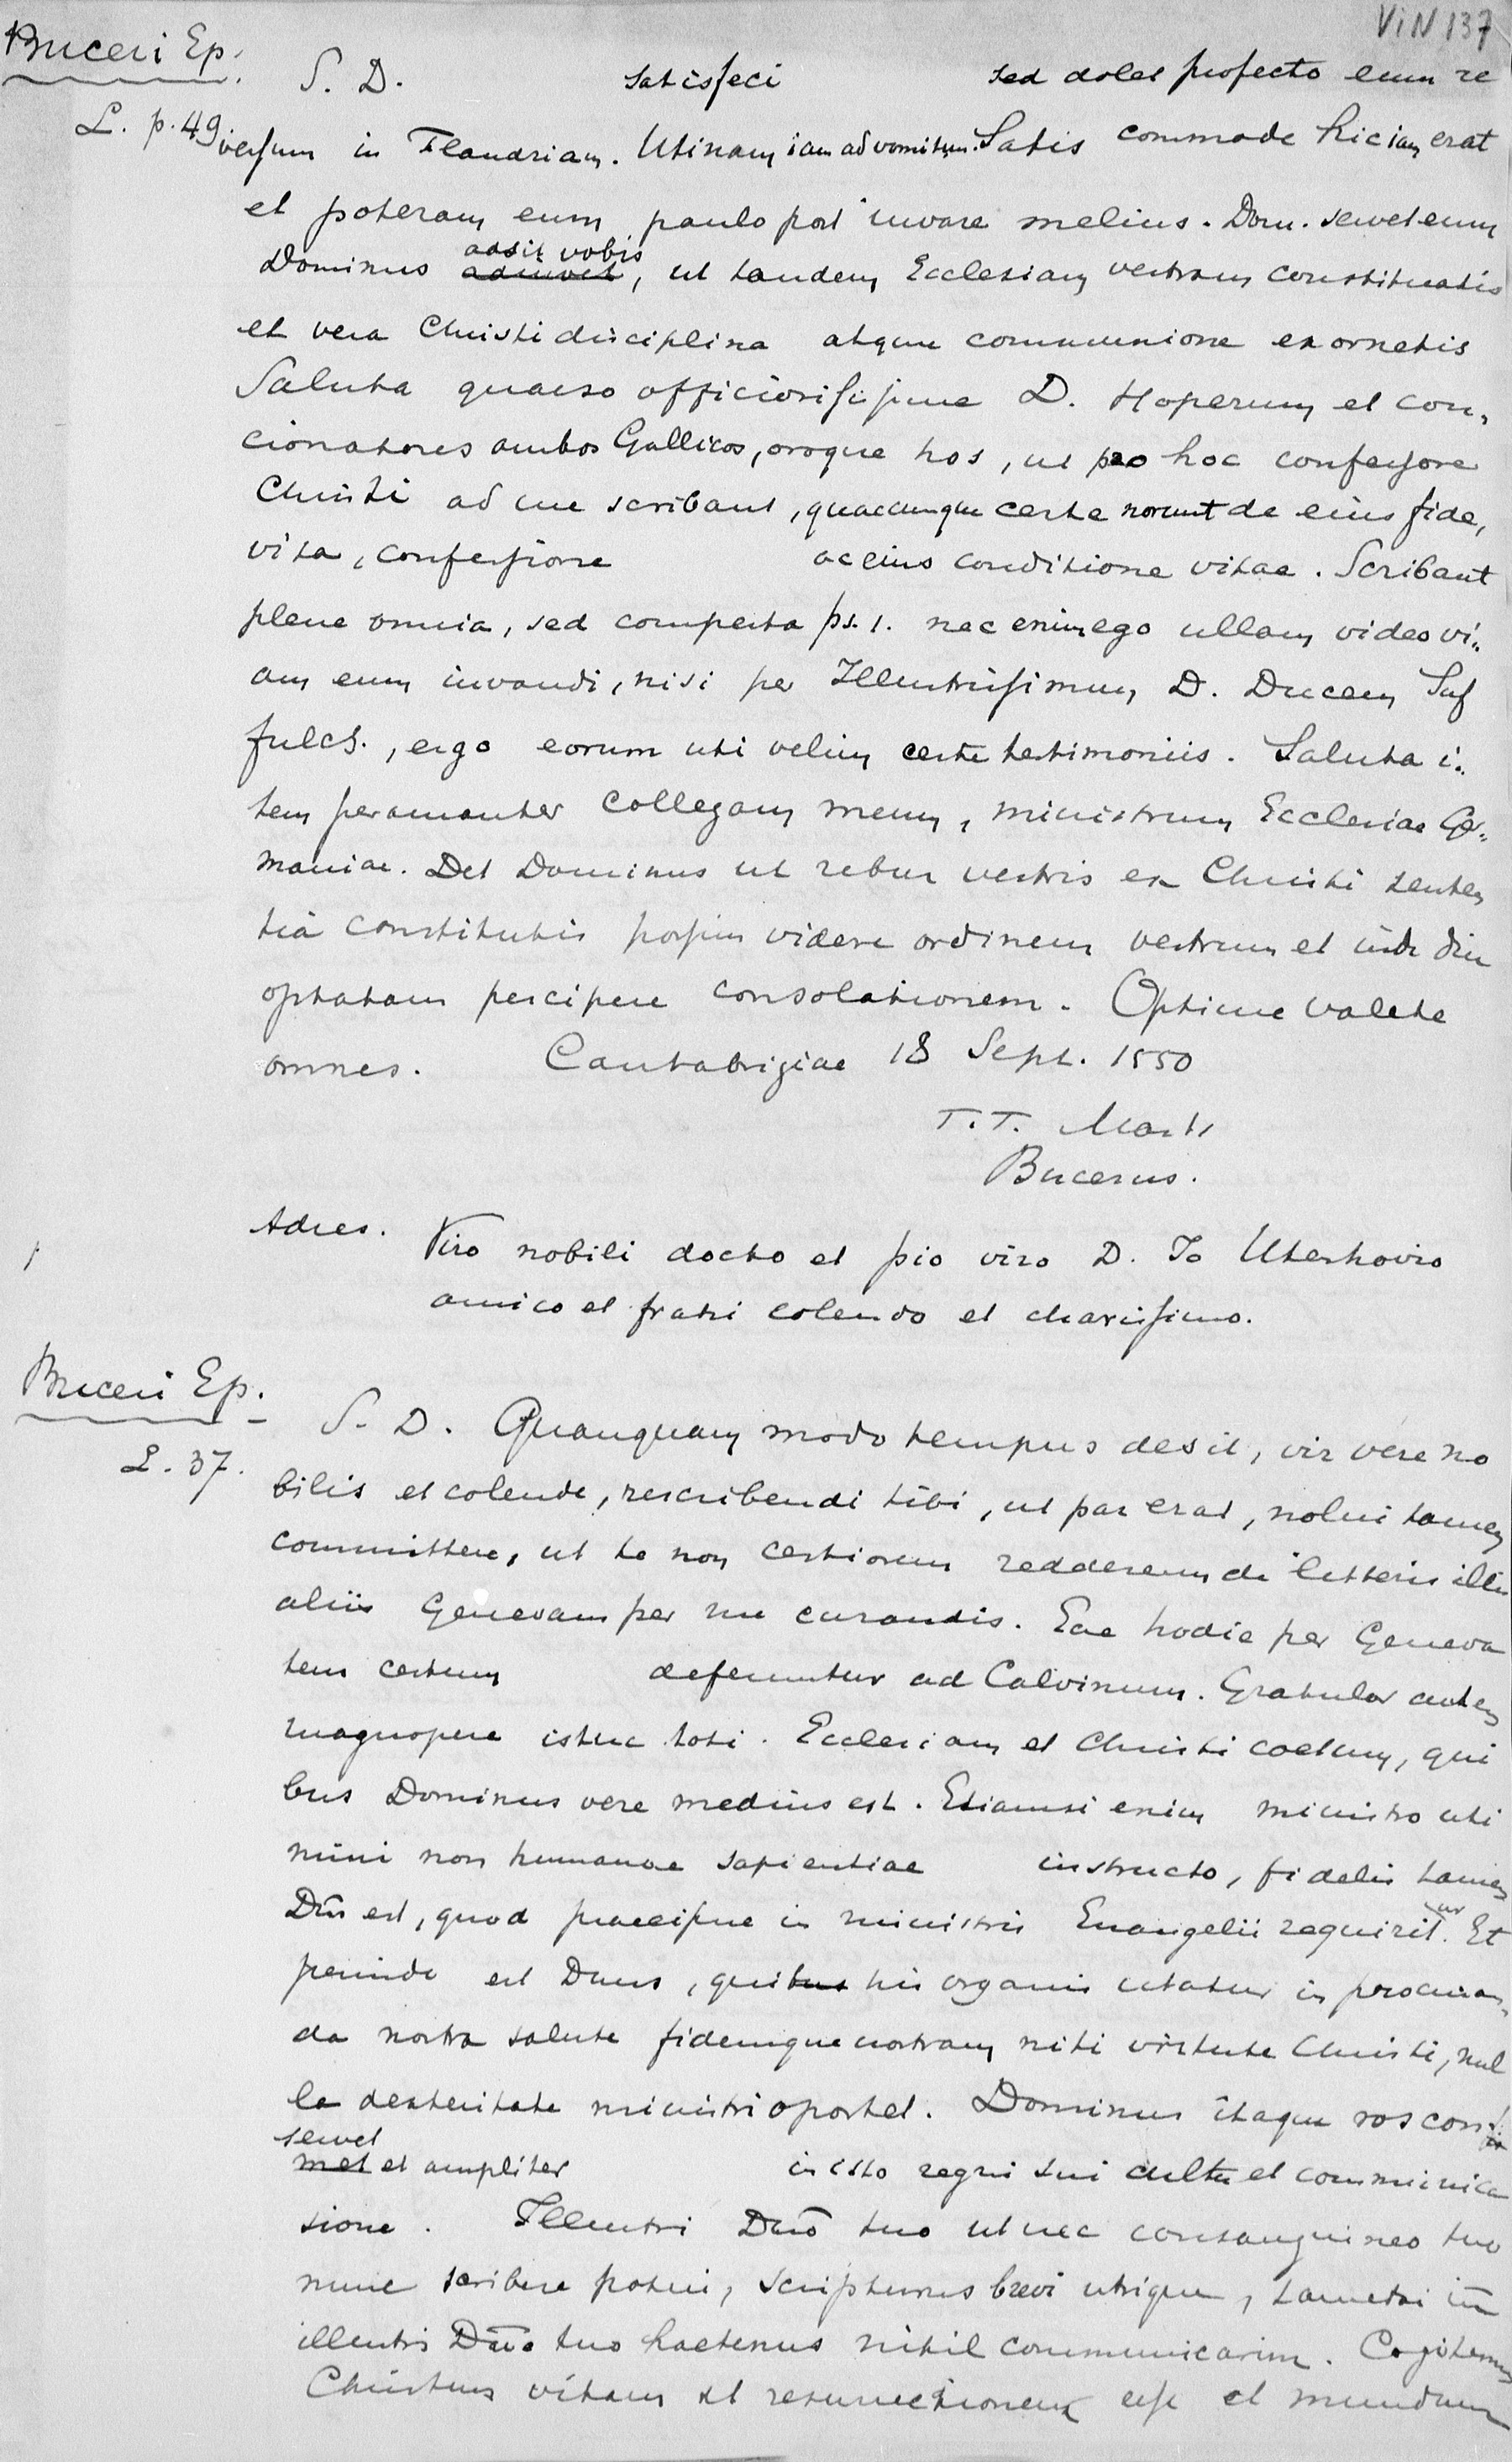 ViN 137
Buceri Ep.
L. p. 49
S. D. satisfeci sed dolet profecto eum re
versum in Flandriam. Utinam iam ad vomitum. Satis commode hic iam erat
et poteram eum paulo post iuvare melius. Dom. servet eum
adsit vobis
Dominus adiuvet, ut tandem Ecclesiam vestram constituatis
et vera Christi disciplina atque communione exornetis
Saluta quaeso officiosissime D. Hoperum et con„
cionatores ambos Gallicos, oroque hos, ut pro hoc confessore
Christi ad me scribant, quaecunque certe norunt de eius fide,
vita, confessione ac eius conditione vitae. Scribant
plene omnia, sed comperta ps. 1. nec enim ego ullam video vi„
am eum iuvandi, nisi per Illustrissimum D. Ducem Suf
fulcs., ergo eorum uti velim certe testimoniis. Saluta i„
tem peramanter collegam meum, ministrum Ecclesiae Ger„
maniae. Det Dominus ut rebus vestris ex Christi senten
tia constitutis possim videre ordinem vestrum et inde diu
optatam percipere consolationem. Optime valete
omnes. Cantabrigiae 18 Sept. 1550
T. T. Mart.
Bucerus.
Adres. Viro nobili docto et pio viro D. Jo Utenhovio
amico et fratri colendo et charissimo.
Buceri Ep.
L. 37.
S. D. Quanquam modo tempus desit, vir vere no
bilis et colende, rescribendi tibi, ut par erat, nolui tamen
committere, ut te non certiorem redderem de litteris illis
aliis Genevam per me curandis. Eae hodie per Geneva
tem certum deferuntur ad Calvinum. Gratulor autem
magnopere istuc toti. Ecclesiam et Christi coetum, qui
bus Dominus vere medius est. Etiamsi enim ministro uti
mini non humanae sapientiae instructo, fidelis tamen
Dn̄s est, quod praecipue in ministris Euangelii requirit ur. Et
perinde est Dnus, quibus his organis utatur in procuran„
da nostra salute fidemque nostram niti virtute Christi, nul
la dexteritate ministri oportet. Dominus itaque vos con
servet
met et ampliter in isto regni sui cultu et communica
tione. Illustri Dn̄o tuo ut nec consanguineo tuo
nunc scribere potui, scripturus brevi utrique, tametsi cum
illustri Dn̄o tuo hactenus nihil communicarim. Cogitemus
Christum vitam et resurrectionem esse et mundum